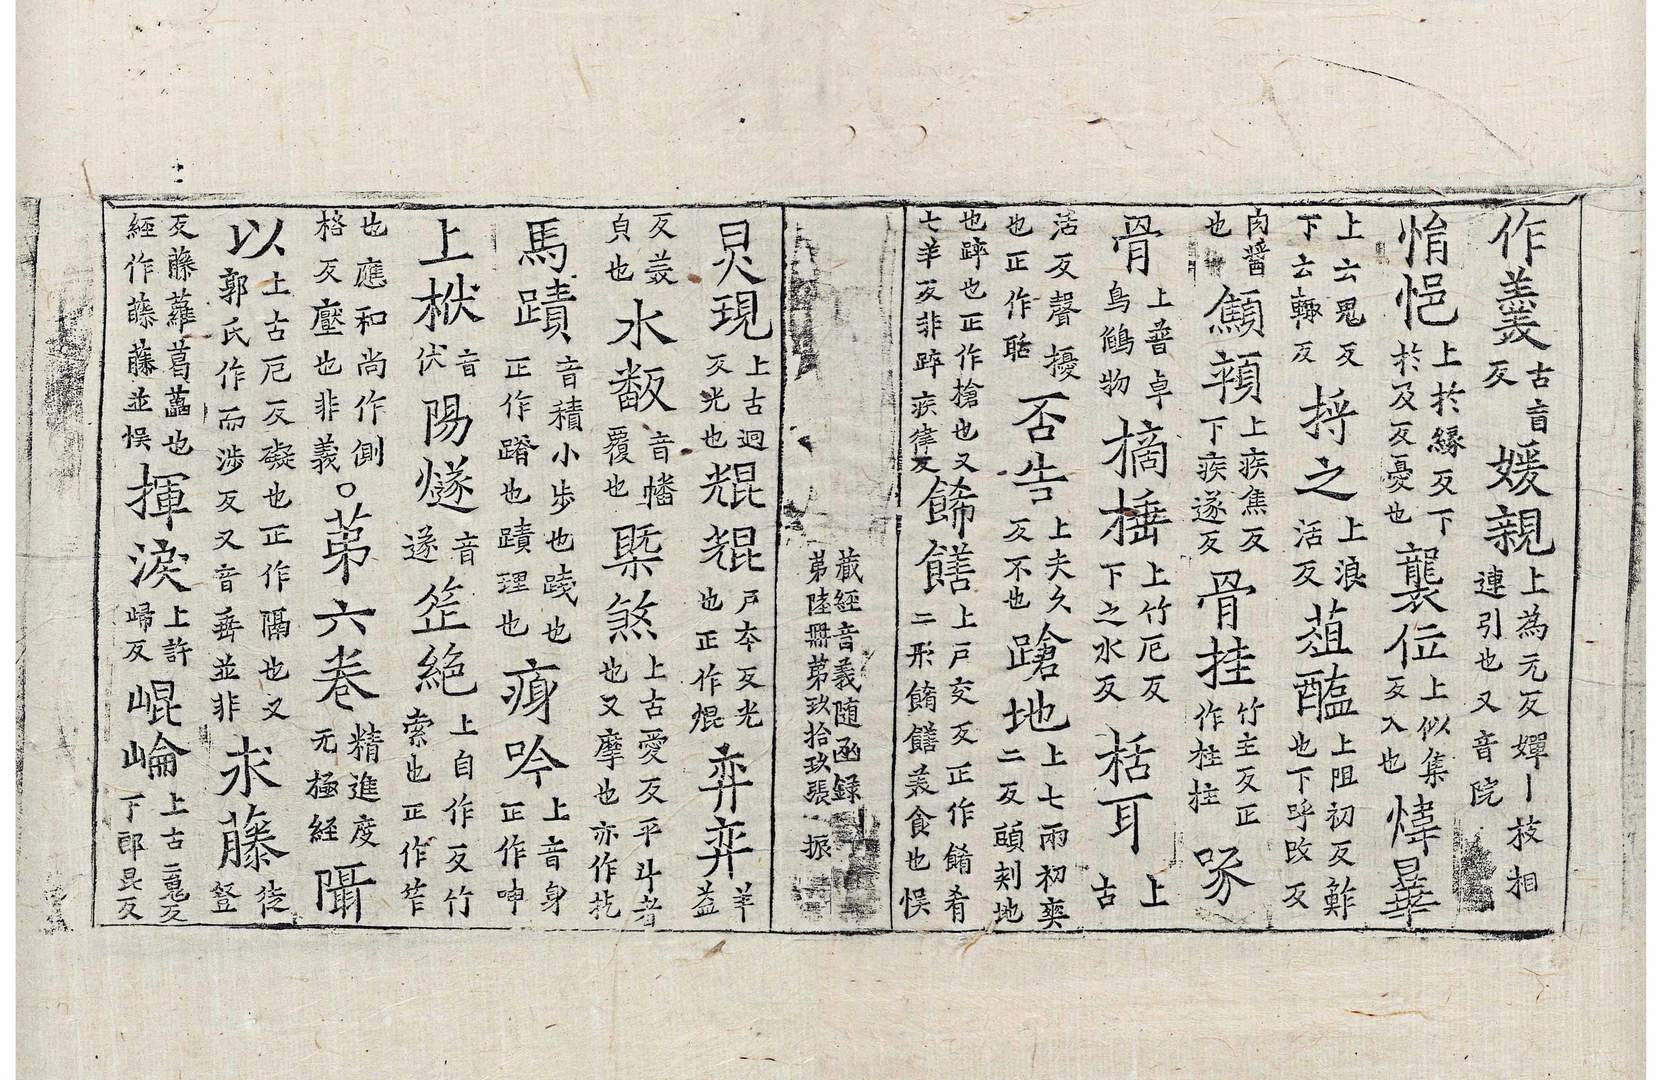 作羹古盲反媛親上為元反嬋丨枝相連引也又音院
悁悒上於緣反下於及反憂也襲位上似集反入也煒曄
上云鬼反下云輙反捋之上浪活反葅醢上阻初反鮓也下呼改反
肉醬也顦顇上疾焦反下疾遂反骨拄竹主反正作柱拄啄
骨上普卓反鳥鵮物摘捶上竹厄反下之水反栝耳上古
活反聲擾也正作聒否告上夫久反不也蹌地上七兩初爽二反頭刻地
也踤也正作搶也又七羊反非踤疾律反餙饍上戶交反正作餚肴二形餚饍美食也悮
藏經音義随函録
第陸冊第玖拾玖張 振
炅現上古迥反光也焜焜戶本反光也正作焜弈弈羊益
反美皃也水飜音幡覆也槩煞上古愛反平斗者也又摩也亦作扢
馬蹟音積小步也踐也正作蹐也蹟理也痟吟上音身正作呻
上栿音伏陽燧音遂筰絕上自作反竹索也正作笮
也應和尚作側格反壓也非義。○第六卷精進度無極經隔
以上古厄反礙也正作隔也又郭氏作而涉反又音垂並非求藤徒登
反藤蘿葛藟也經作䕨藤並悮揮淚上許歸反崐崘上古魂反下郎昆反